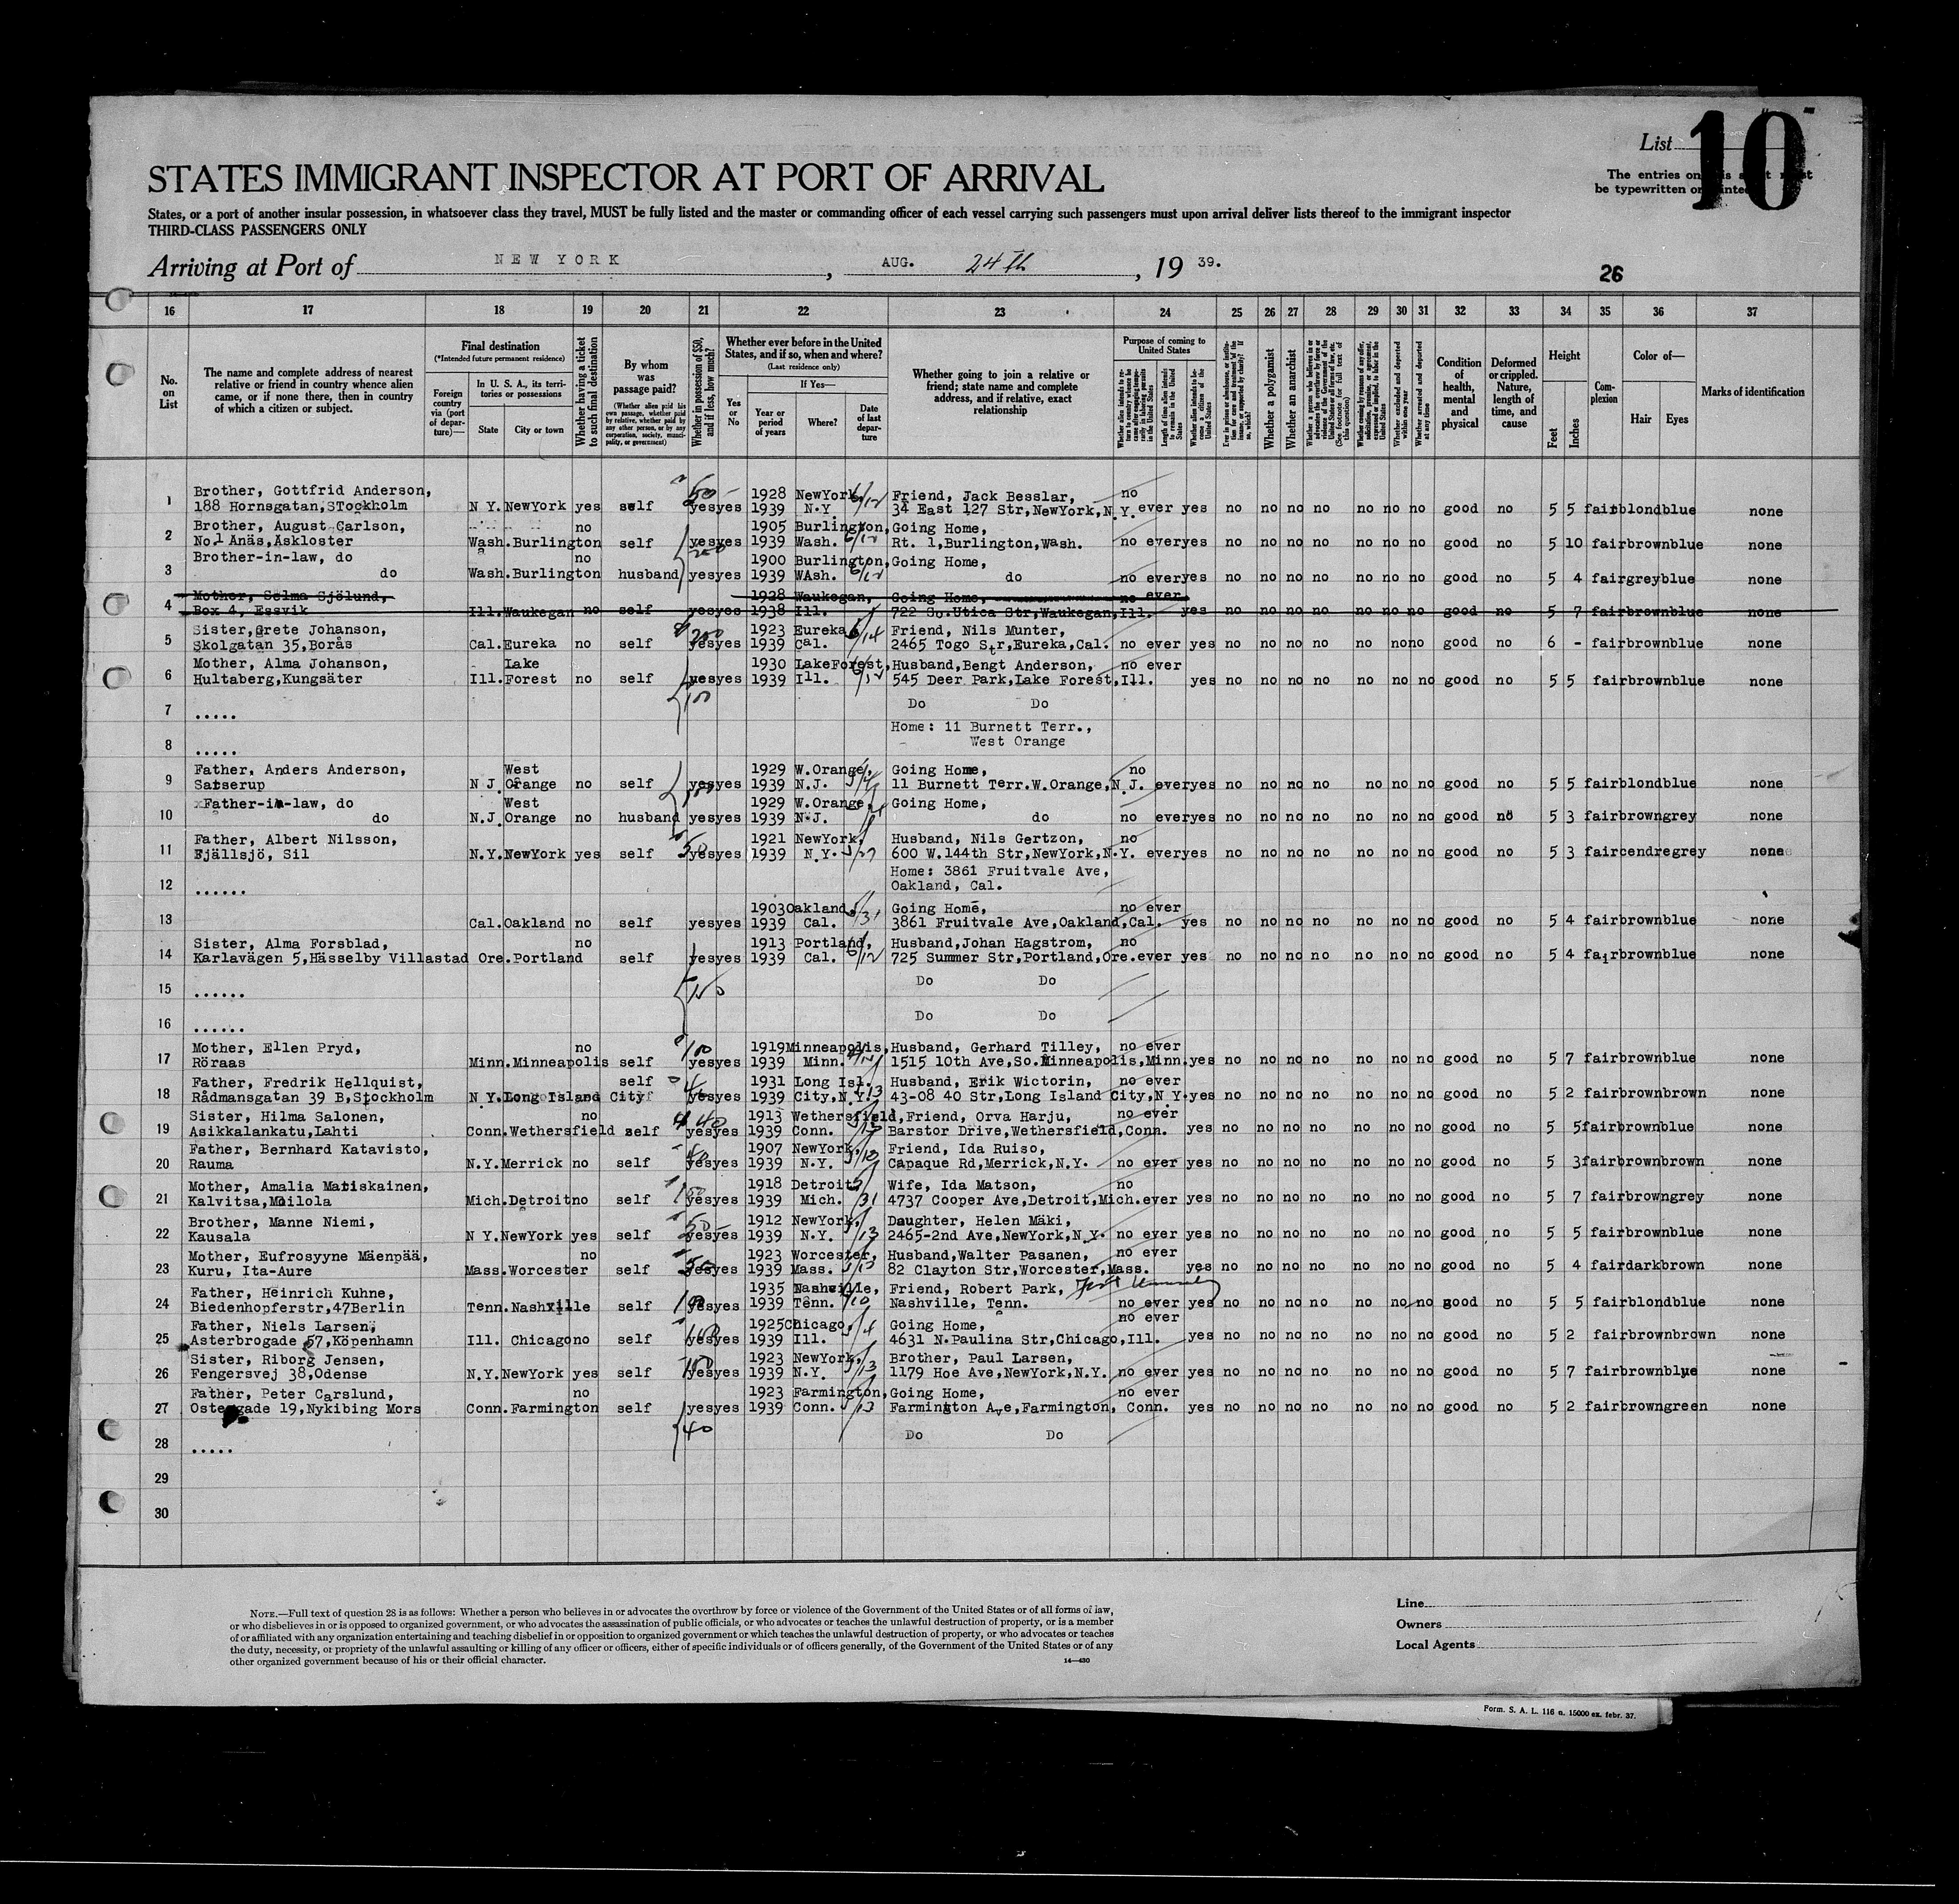 List 10
The entries on
be typewritten or
STATES IMMIGRANT INSPECTOR AT PORT OF ARRIVAL
States, or a port of another insular possession, in whatsoever class they travel, MUST be fully listed and the master or commanding officer of each vessel carrying such passengers must upon arrival deliver lists thereof to the immigrant inspector
THIRD-CLASS PASSENGERS ONLY
Arriving at Port of NEW YORK, AUG. 24th, 19 39.
26
16 17 18 19 20 21 22 23 24 25 26 27 28 29 30 31 32 33 34 35 36 37
No. on List
The name and complete address of nearest relative or friend in country whence alien came, or if none there, then in country of which a citizen or subject.
Final destination
(*Intended future permanent residence)
Foreign country via (port of departure)—
In U. S. A., its territories or possessions
State City or town
Whether having a ticket to such final destination
By whom was passage paid?
(Whether alien paid his own passage, whether paid by relative, whether paid by any other person, or by any corporation, society, municipality, or government)
Whether in possession of $50, and if less, how much?
Whether ever before in the United States, and if so, when and where?
(Last residence only)
Yes or No
If Yes—
Year or period of years
Where?
Date of last departure
Whether going to join a relative or friend; state name and complete address, and if relative, exact relationship
Purpose of coming to United States
Length of time alien intends to remain in the United States
Whether alien intends to become a citizen of the United States
Whether a polygamist
Whether an anarchist
Whether excluded and deported within one year
Whether arrested and deported at any time
Condition of health, mental and physical
Deformed or crippled. Nature, length of time, and cause
Height
Feet Inches
Complexion
Color of—
Hair Eyes
Marks of identification
1 Brother, Gottfrid Anderson, 1928 NewYork, Friend, Jack Besslar, no
188 Hornsgatan,STockholm N Y. NewYork yes self yes yes 1939 N.Y. 34 East 127 Str,NewYork,N.Y. ever yes no no no no no no no good no 5 5 fair blond blue none
2 Brother, August Carlson, no 1905 Burlington, Going Home,
No.1 Anäs,Askloster Wash. Burlington self yes yes 1939 Wash. Rt. 1,Burlington,Wash. no ever yes no no no no no no no good no 5 10 fair brown blue none
3 Brother-in-law, do no 1900 Burlington, Going Home,
do Wash. Burlington husband yes yes 1939 WAsh. do no ever yes no no no no no no no good no 5 4 fair grey blue none
4 Mother, Selma Sjölund, 1928 Waukegan, Going Home, no ever
Box 4, Essvik Ill. Waukegan no self yes yes 1938 Ill. 722 So.Utica Str,Waukegan,Ill. yes no no no no no no no good no 5 7 fair brown blue none
5 Sister,Grete Johanson, 1923 Eureka, Friend, Nils Munter,
Skolgatan 35,Borås Cal. Eureka no self yes yes 1939 Cal. 2465 Togo Str,Eureka,Cal. no ever yes no no no no no no good no 6 - fair brown blue none
6 Mother, Alma Johanson, Lake 1930 LakeForest, Husband,Bengt Anderson, no ever
Hultaberg,Kungsäter Ill. Forest no self yes yes 1939 Ill. 545 Deer Park,Lake Forest,Ill. yes no no no no no no no good no 5 5 fair brown blue none
100
7 ..... Do Do
8 ..... Home: 11 Burnett Terr.,
West Orange
9 Father, Anders Anderson, West 1929 W.Orange, Going Home, no
Satserup N J. Orange no self yes yes 1939 N.J. 11 Burnett Terr.W.Orange,N.J. ever yes no no no no no no no good no 5 5 fair blond blue none
10 Father-in-law, do West 1929 W.Orange, Going Home,
do N.J. Orange no husband yes yes 1939 N.J. do no ever yes no no no no no no no good no 5 3 fair brown grey none
11 Father, Albert Nilsson, 1921 NewYork, Husband, Nils Gertzon, no
Fjällsjö, Sil N.Y. NewYork yes self yes yes 1939 N.Y. 600 W.144th Str,NewYork,N.Y. ever yes no no no no no no no good no 5 3 fair cendre grey none
12 ...... Home: 3861 Fruitvale Ave,
Oakland, Cal.
13 1903 Oakland, Going Home, no ever
Cal. Oakland no self yes yes 1939 Cal. 3861 Fruitvale Ave,Oakland,Cal. yes no no no no no no no good no 5 4 fair brown blue none
14 Sister, Alma Forsblad, no 1913 Portland, Husband,Johan Hagstrom, no
Karlavägen 5,Hässelby Villastad Ore. Portland self yes yes 1939 Cal. 725 Summer Str,Portland,Ore. ever yes no no no no no no no good no 5 4 fair brown blue none
15 ...... 150 Do Do
16 ...... Do Do
17 Mother, Ellen Pryd, no 100 1919 Minneapolis, Husband, Gerhard Tilley, no ever
Röraas Minn. Minneapolis self yes yes 1939 Minn. 1515 10th Ave,So.Minneapolis,Minn. yes no no no no no no no good no 5 7 fair brown blue none
18 Father, Fredrik Hellquist, self 1931 Long Isl. Husband, Erik Wictorin, no ever
Rådmansgatan 39 B,Stockholm N Y. Long Island City yes yes 1939 City,N.Y. 43-08 40 Str,Long Island City,N.Y. yes no no no no no no no good no 5 2 fair brown brown none
19 Sister, Hilma Salonen, no 40 1913 Wethersfield, Friend, Orva Harju, no ever
Asikkalankatu,Lahti Conn. Wethersfield self yes yes 1939 Conn. Barstor Drive,Wethersfield,Conn. yes no no no no no no no good no 5 5 fair brown blue none
20 Father, Bernhard Katavisto, 1907 NewYork, Friend, Ida Ruiso,
Rauma N.Y. Merrick no self yes yes 1939 N.Y. Capaque Rd,Merrick,N.Y. no ever yes no no no no no no no good no 5 3 fair brown brown none
21 Mother, Amalia Matiskainen, 1918 Detroit, Wife, Ida Matson, no
Kalvitsa,Muilola Mich. Detroit no self yes yes 1939 Mich. 4737 Cooper Ave,Detroit,Mich. ever yes no no no no no no no good no 5 7 fair brown grey none
22 Brother, Manne Niemi, 1912 NewYork, Daughter, Helen Mäki,
Kausala N Y. NewYork yes self yes yes 1939 N.Y. 2465-2nd Ave,NewYork,N.Y. no ever yes no no no no no no no good no 5 5 fair brown blue none
23 Mother, Eufrosyyne Mäenpää, no 1923 Worcester, Husband,Walter Pasanen, no ever
Kuru, Ita-Aure Mass. Worcester self yes yes 1939 Mass. 82 Clayton Str,Worcester,Mass. yes no no no no no no no good no 5 4 fair dark brown none
24 Father, Heinrich Kuhne, 1935 Nashville, Friend, Robert Park,
Biedenhopferstr,47Berlin Tenn. Nashville self yes yes 1939 Tenn. Nashville, Tenn. no ever yes no no no no no no no good no 5 5 fair blond blue none
25 Father, Niels Larsen, 1925 Chicago, Going Home, no ever
Asterbrogade 57,Köpenhamn Ill. Chicago no self yes yes 1939 Ill. 4631 N.Paulina Str,Chicago,Ill. yes no no no no no no no good no 5 2 fair brown brown none
26 Sister, Riborg Jensen, 1923 NewYork, Brother, Paul Larsen,
Fengersvej 38,Odense N.Y. NewYork yes self yes yes 1939 N.Y. 1179 Hoe Ave,NewYork,N.Y. no ever yes no no no no no no no good no 5 7 fair brown blue none
27 Father, Peter Carslund, no 1923 Farmington, Going Home, no ever
Ostergade 19,Nykibing Mors Conn. Farmington self yes yes 1939 Conn. Farmington Ave,Farmington, Conn. yes no no no no no no no good no 5 2 fair brown green none
28 ..... 40 Do Do
29
30
NOTE.—Full text of question 28 is as follows: Whether a person who believes in or advocates the overthrow by force or violence of the Government of the United States or of all forms of law,
or who disbelieves in or is opposed to organized government, or who advocates the assassination of public officials, or who advocates or teaches the unlawful destruction of property, or is a member
of or affiliated with any organization entertaining and teaching disbelief in or opposition to organized government or which teaches the unlawful destruction of property, or who advocates or teaches
the duty, necessity, or propriety of the unlawful assaulting or killing of any officer or officers, either of specific individuals or of officers generally, of the Government of the United States or of any
other organized government because of his or their official character.
14—430
Line
Owners
Local Agents
Form. S. A. L. 116 a. 15000 ex. febr. 37.